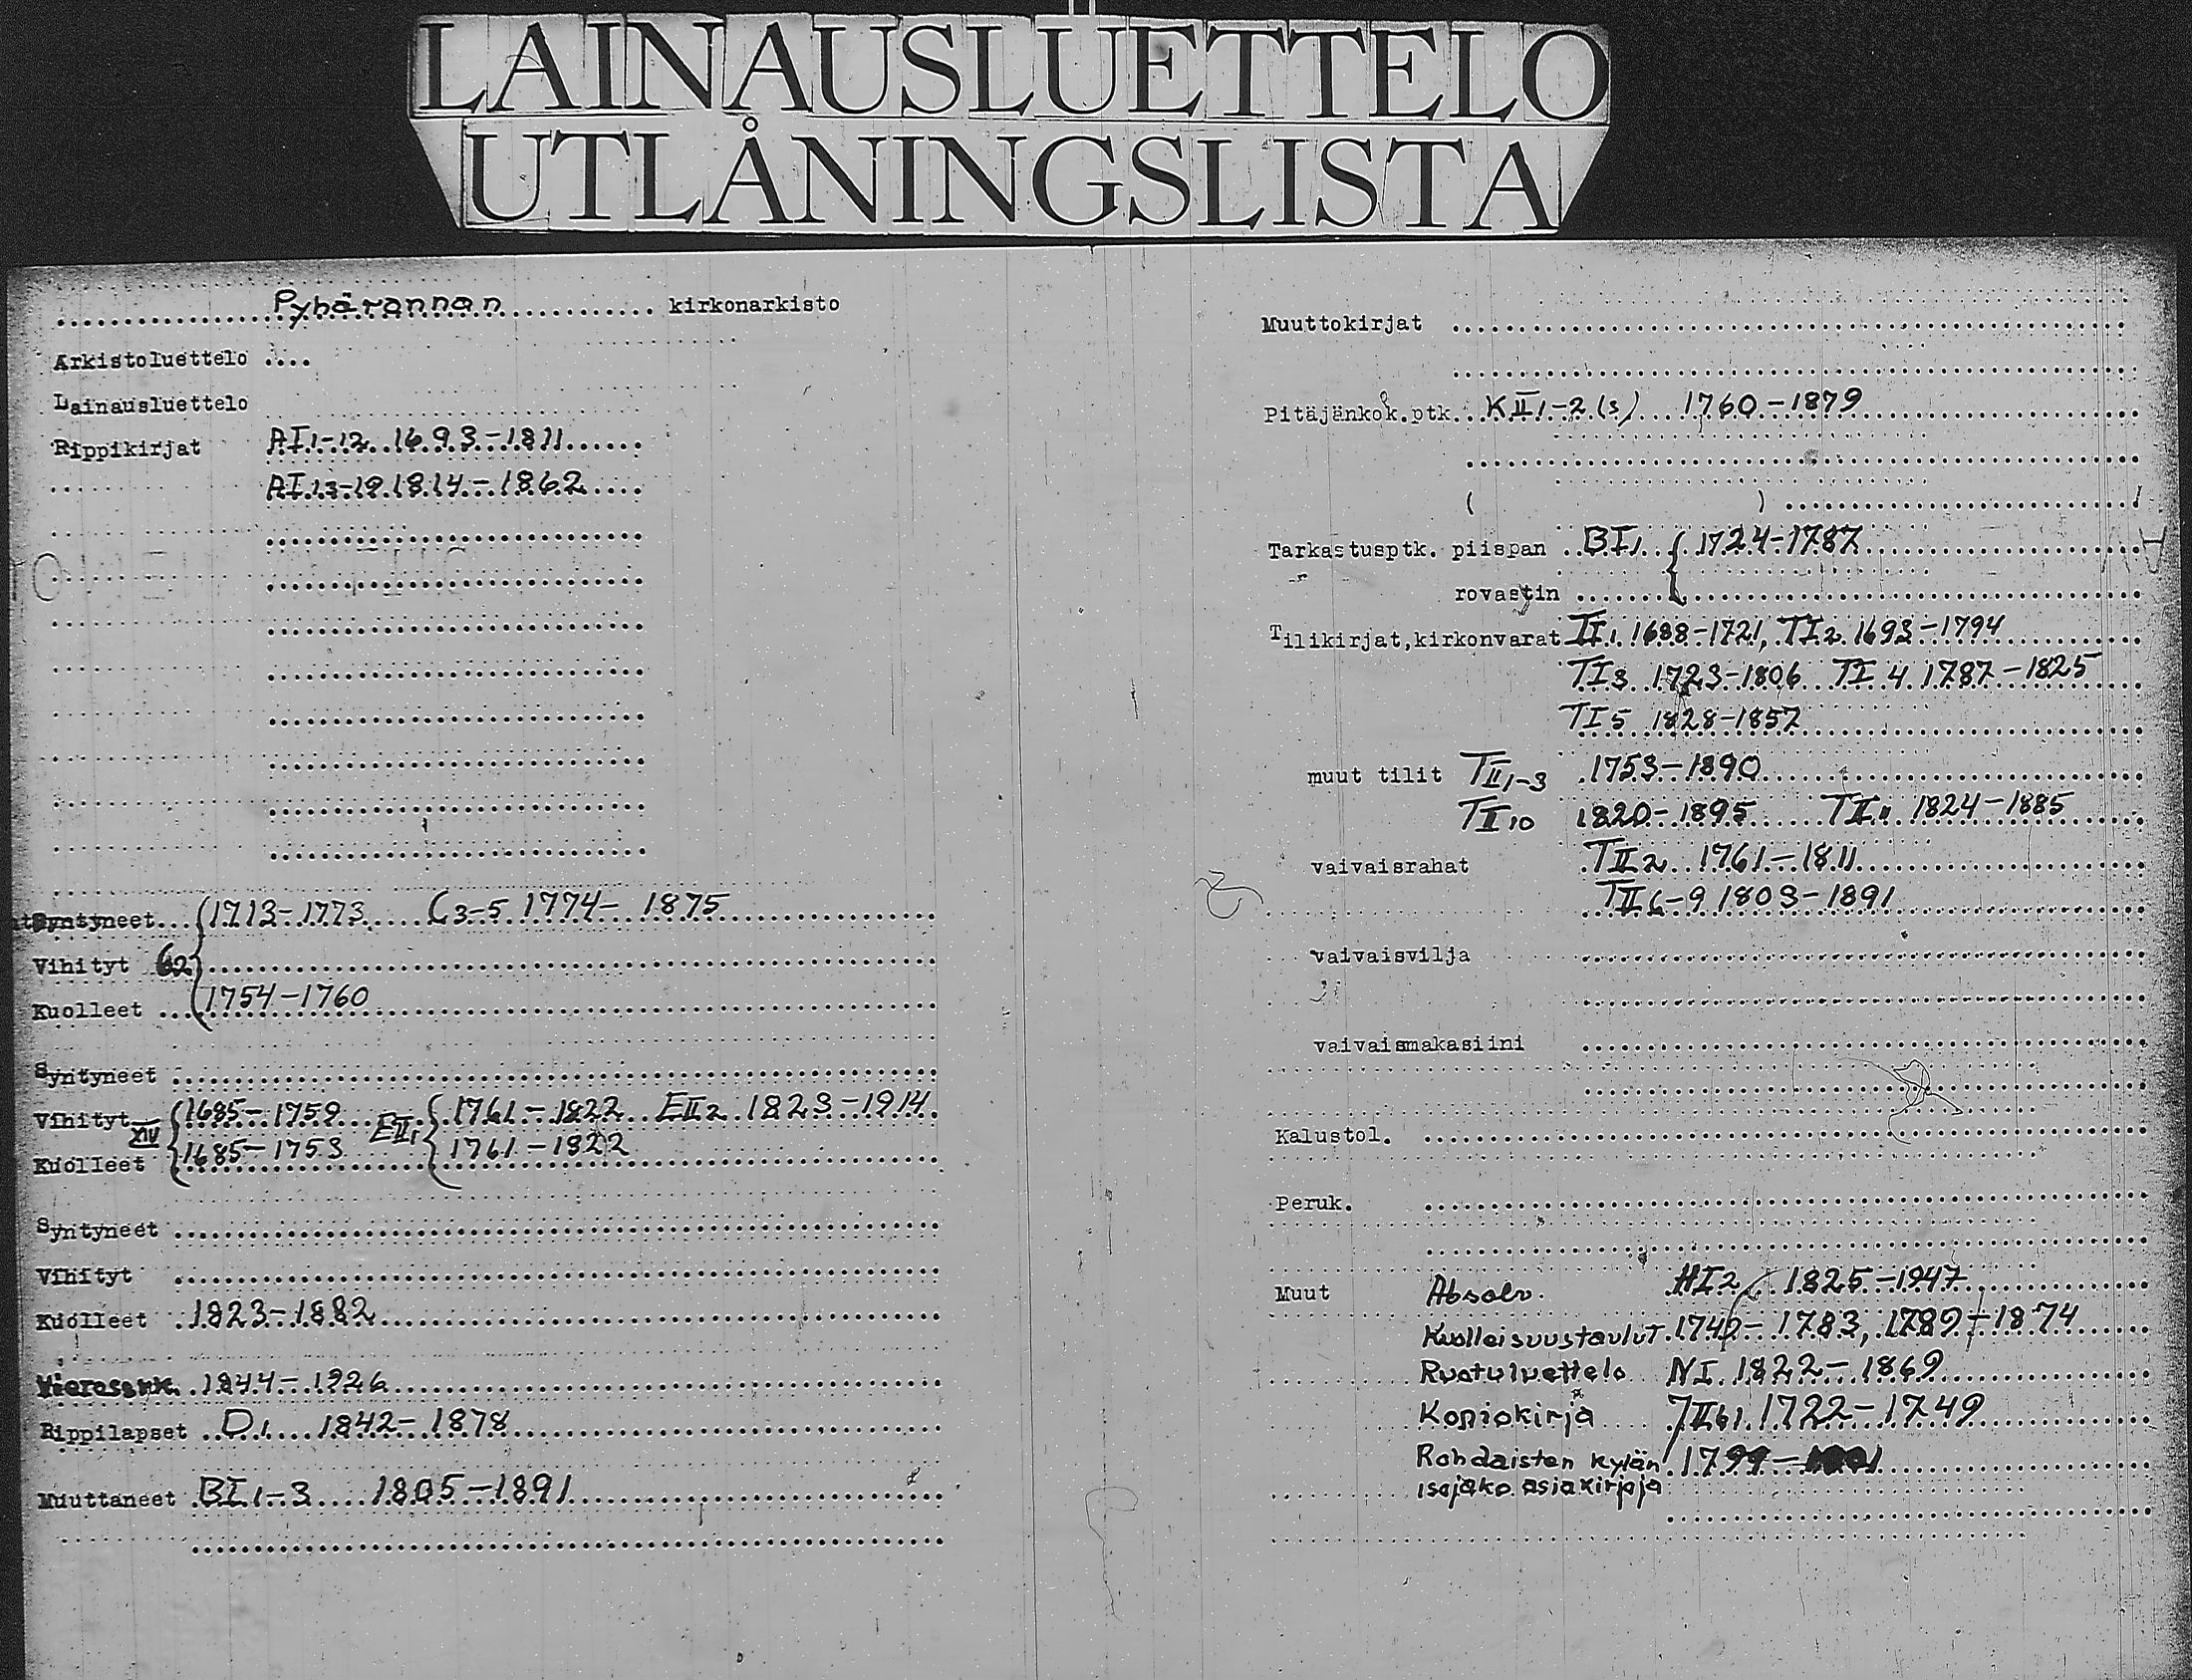 LAINAUSLUETTELO
UTLÅNINGSLISTA
Pyhärannan kirkonarkisto
Arkistoluettelo
Lainausluettelo
Rippikirjat AI1-12 1693-1811
AI13-19 1814-1862
Syntyneet 1713-1773 C3-5 1774-1875
Vihityt
Kuolleet 1754-1760
Syntyneet
Vihityt 1685-1759 EII1 1761-1822 EII2 1823-1914
Kuolleet 1685-1753 1761-1822
Syntyneet
Vihityt
Kuolleet 1823-1882
1844-1926
Rippilapset D1 1842-1878
Muuttaneet BI1-3 1805-1891
Muuttokirjat
Pitäjänkok.ptk. KII1-2(s) 1760-1879
( )
Tarkastusptk. piispan BI1 { 1724-1787
" rovastin
Tilikirjat,kirkonvarat TI1 1688-1721, TI2 1693-1794
TI3 1723-1806 TI4 1787-1825
TI5 1828-1857
muut tilit TII1-3 1753-1890
TII10 1820-1895 TII11 1824-1885
vaivaisrahat TII2 1761-1811
TII6-9 1803-1891
vaivaisvilja
vaivaismakasiini
Kalustol.
Peruk.
Muut Absolv. HI2 1825-1947
Kuolleisuustaulut 1749-1783, 1789-1874
Ruotuluettelo NI 1822-1869
Kopiokirja JIIb1 1722-1749
Rohdaisten kylän 1799-
isojako asiakirjoja